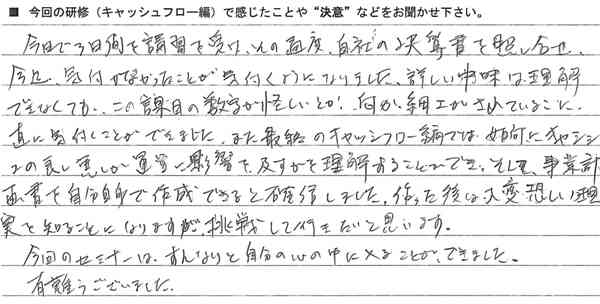 ■ 今回の研修（キャッシュフロー編）で感じたことや“決意”などをお聞かせ下さい。
今日で3日間を講習を受け、その都度、自社の決算書を照し合せ、
今迄、気付かなかったことが気付くようになりました。詳しい中味は理解
できなくても、この課目の数字が怪しいとか、何か、細工がされていることに、
直に気付くことができました。また最終のキャッシュフロー編では、如何にキャッシュ
の良し悪しが運営に影響を及すかを理解することができ、そして、事業計
画書を自分自身で作成できると確信しました。作った後は大変恐しい現
実を知ることになりますが、挑戦して行きたいと思います。
今回のセミナーは、すんなりと自分の心の中に入ることができました。
有難うございました。